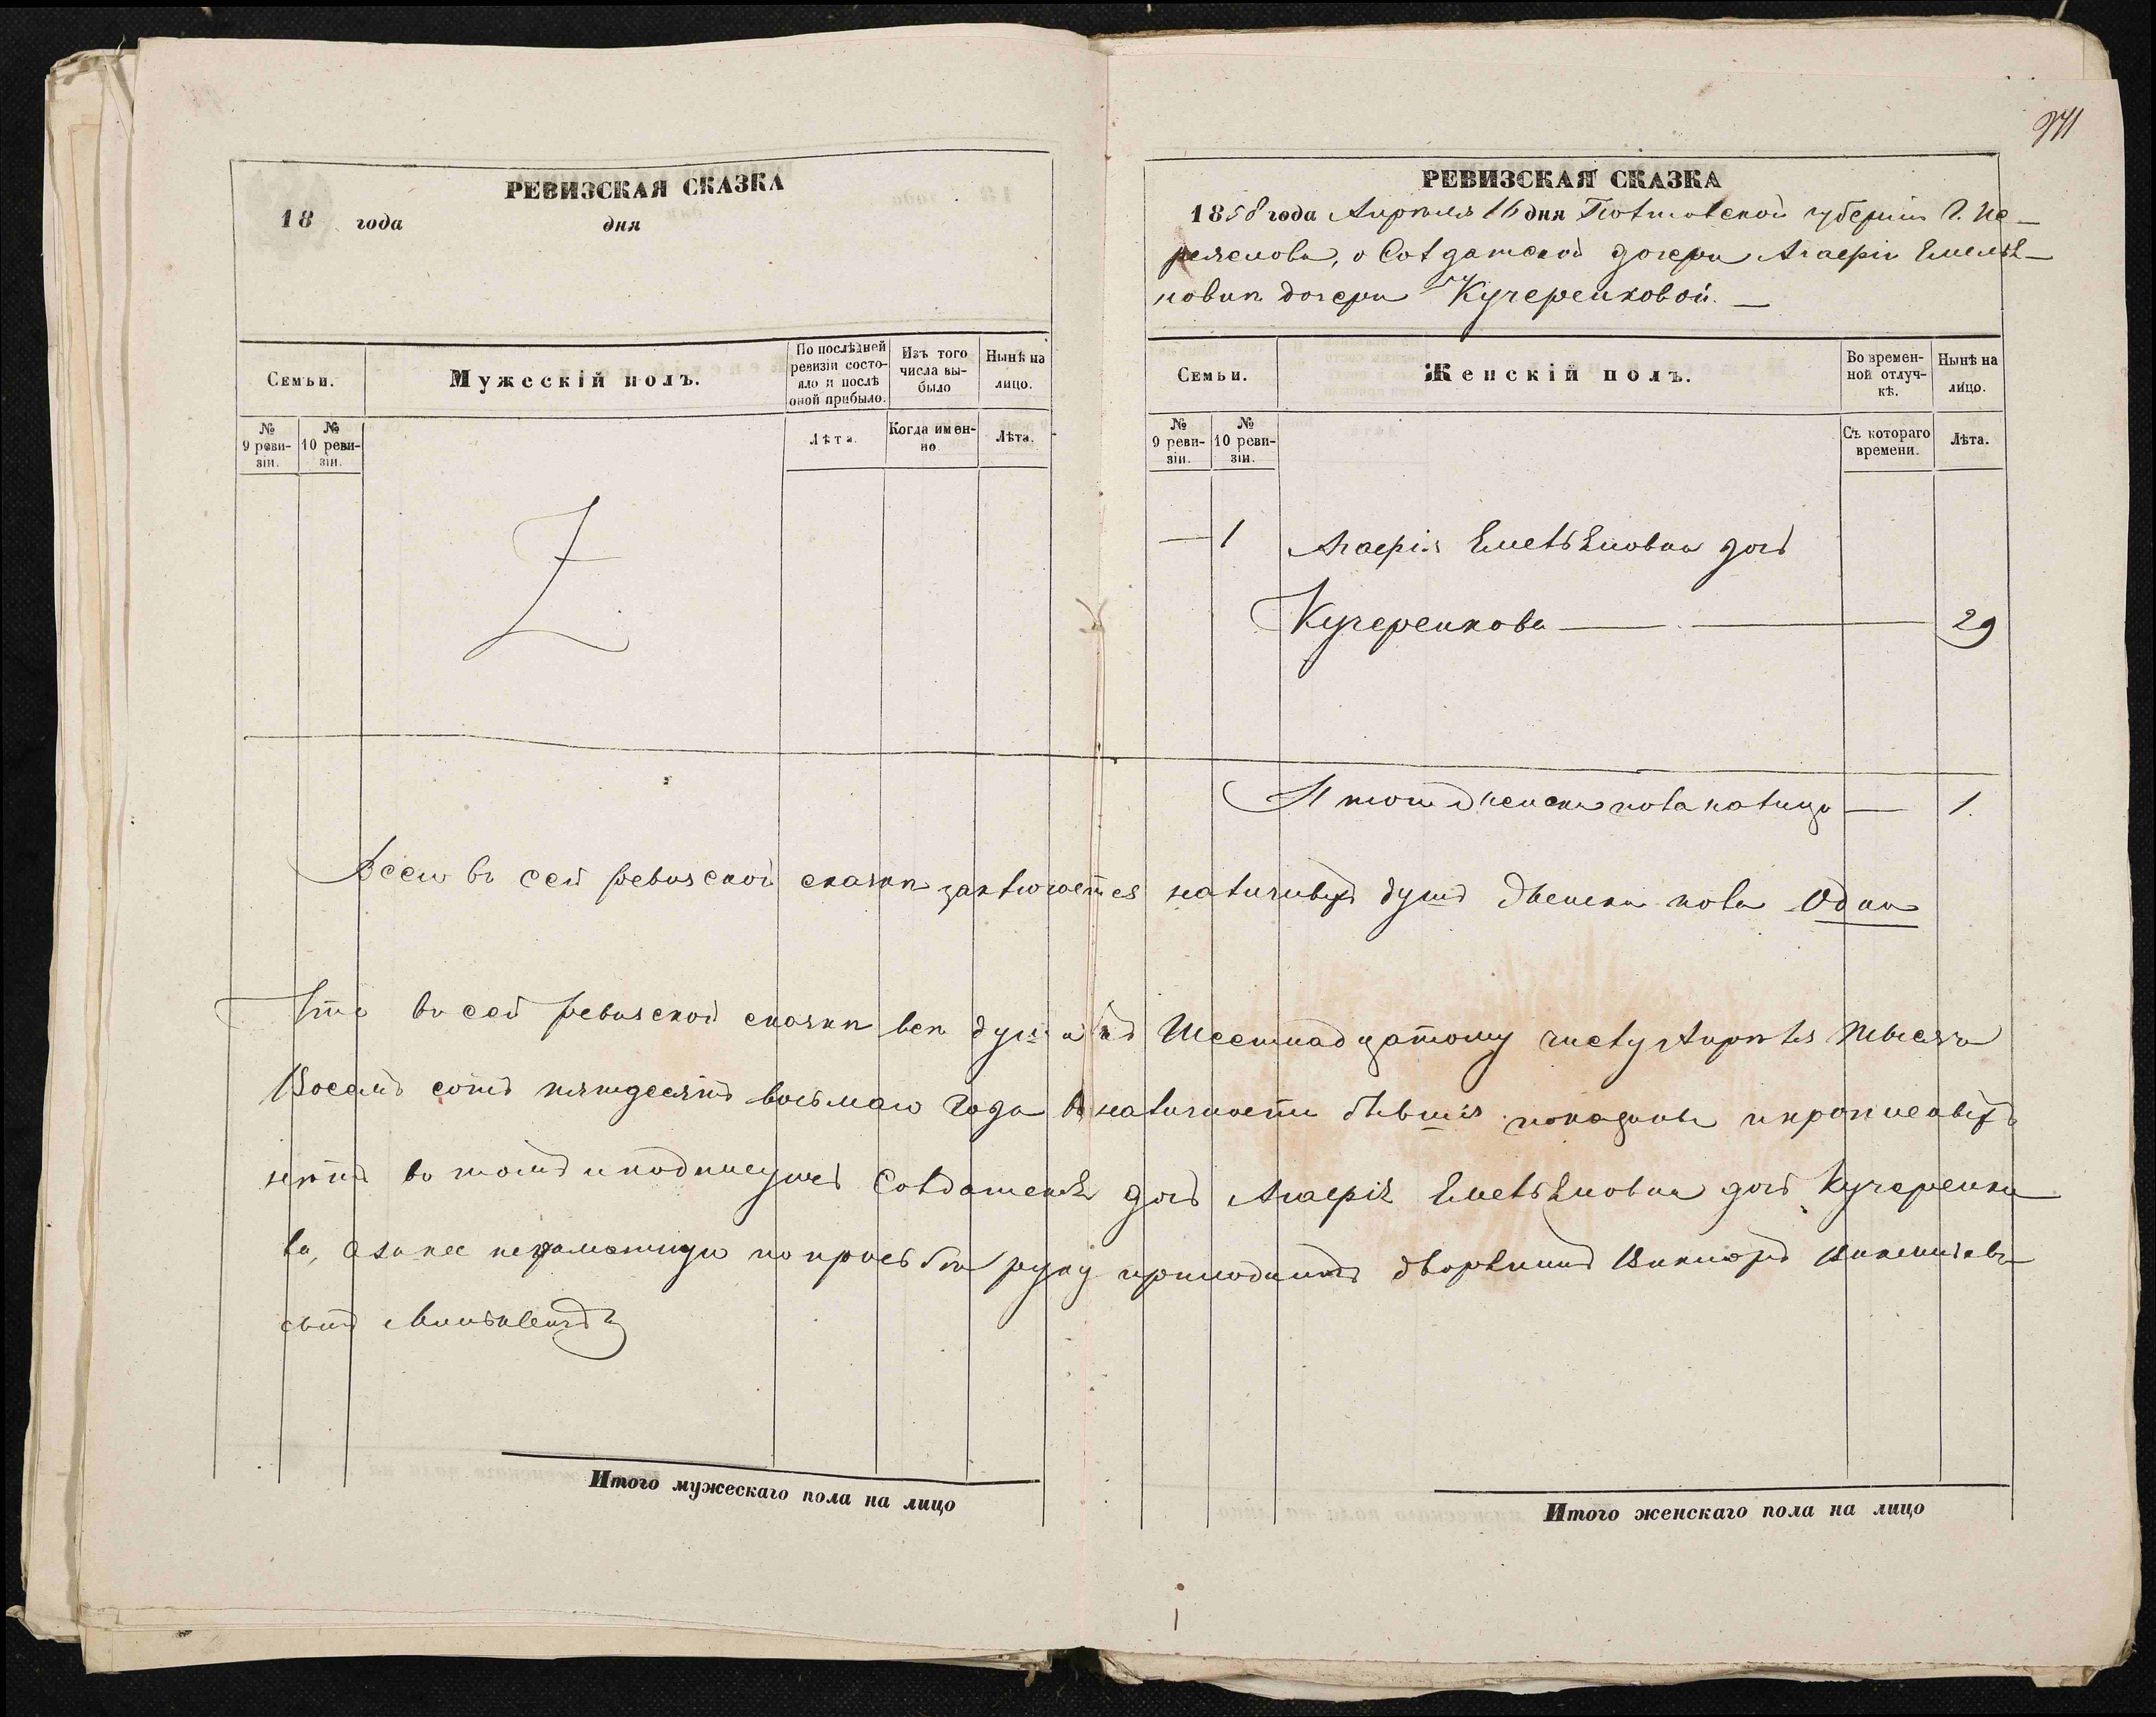 971
РЕВИЗСКАЯ СКАЗКА
18 года дня
Семьи.
Мужескій полъ.
По послѣдней ревизіи состояло и послѣ оной прибыло.
Изъ того числа выбыло
Нынѣ на лицо.
№ 9 ревизіи.
№ 10 ревизіи.
Лѣта.
Когда именно.
Лѣта.
РЕВИЗСКАЯ СКАЗКА
1858 года Апрѣля 16 дня Полтавской губерніи Г. Пе-
реяслова, о Солдатской дочери Агафіи Емелья-
новнѣ дочери Кучеренковой. —
Семьи.
Женскій полъ.
Во временной отлучкѣ.
Нынѣ на лицо.
№ 9 ревизіи.
№ 10 ревизіи.
Съ котораго времени.
Лѣта.
— 1 Агафія Емельяновна дочь
Кучеренкова — 29
Итого женска пола налицо — 1.
Всего въ сей ревизской сказкѣ заключается наличныхъ душъ женска пола Одна
Что въ сей ревизской сказкѣ всѣ души къ Шестнадцатому числу Апрѣля тысяча
Восемь сотъ пятдесятъ восьмаго Года въ наличности бывшія показаны и прописныхъ
нѣтъ въ томъ и подписуюсь Солдатская дочь Агафія Емельяновна дочь Кучеренко
ва, а за нее неграмотную по прозьбѣ руку приложилъ дворянинъ Викторъ
сынъ
Итого мужескаго пола на лицо
Итого женскаго пола на лицо